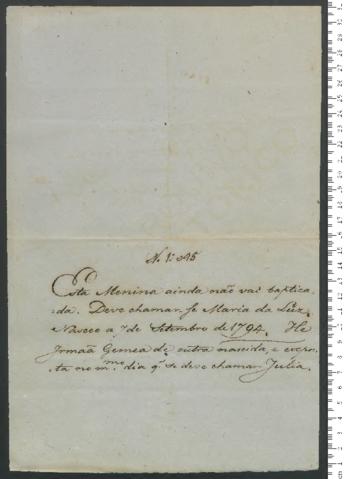 N. 1:
Esta Menina ainda não vai baptiza-
da. Deve chamar-se Maria da Luz.
Nasceo a 7 de Setembro de 1794. He
Irmaã Gemea de outra nascida, e expos-
ta no mmo. dia q. se deve chamar Julia.